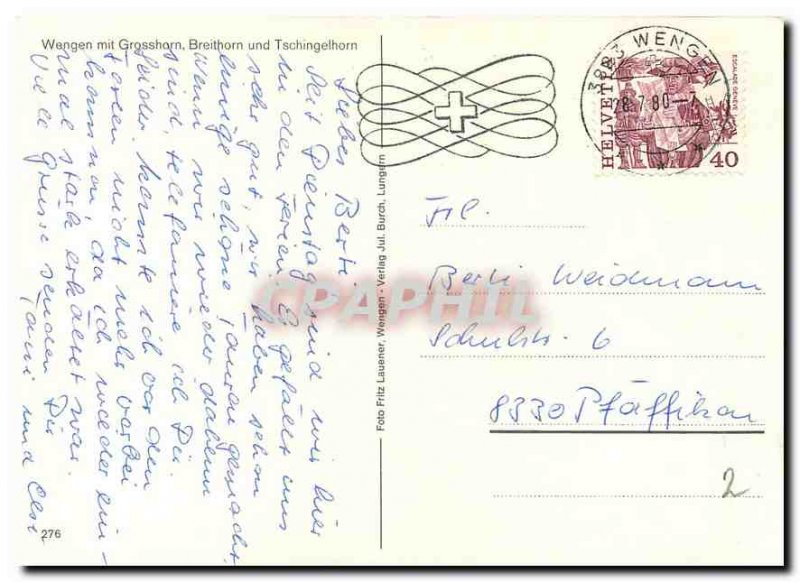 Wengen mit Grosshorn, Breithorn und Tschingelhorn
Lieber Berti
Seit Dienstag sind wir hier
in den Ferien. Es gefällt uns
sehr gut, wir haben schon
einige schöne Touren gemacht
wenn wir wieder daheim
sind, telefoniere ich Dir.
Leider konnte ich vor den
Ferien nicht mehr vorbei
kommen, da ich wieder ein-
mal stark erkältet war.
Viele Grüsse senden Dir
und
276
Foto Fritz Lauener, Wengen - Verlag Jul. Burch, Lungern
3823 WENGEN
28.7.80
HELVETIA
ESCALADE GENÈVE
40
Frl.
Berti Weidmann
Schulstr. 6
8330 Pfäffikon
2
CPAPHIL